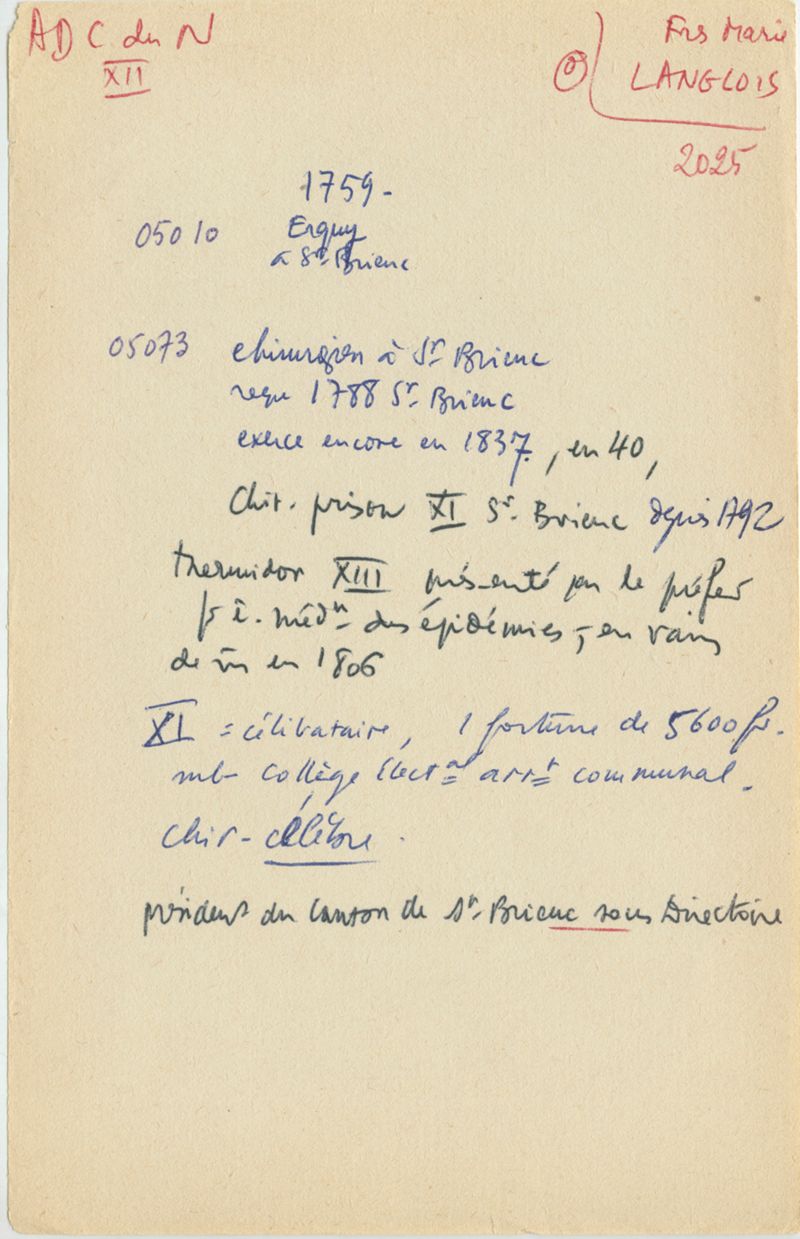 ADC du N
XII
Frs Marie
LANGLOIS
2025
1759-
05010 Erquy
à St-Brieuc
05073 chirurgien à St Brieuc
reçu 1788 St-Brieuc
exerce encore en 1837, en 40,
Chir. prison XI St-Brieuc depuis 1792
thermidor XIII présenté par le préfet
pr ê. médn des épidémies, en vain
de m en 1806
XI = célibataire, 1 fortune de 5600 fr.
mb collège élect al arrt communal.
chir- célèbre.
président du canton de St-Brieuc sous Directoire